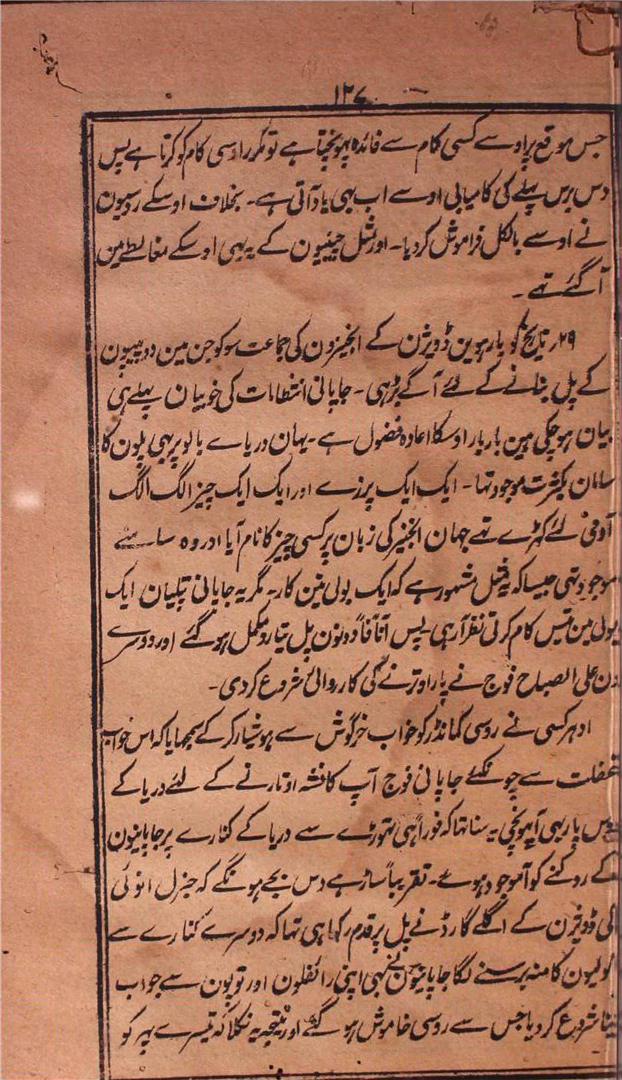 ۱۲۷
جس موقع پر اوسے کسی کام سے فائدہ پہونچتا ہے تو مکرر اوسی کام کو کرتا ہے پس
دس برس پہلے کی کامیابی اوسے اب بہی یاد آتی ہے۔ بخلاف اوسکے روسیون
نے اوسے بالکل فراموش کردیا۔ اور مثل چینیون کے یہ بہی اوسکے مغالطے مین
آگئے تہے۔
۲۹ تاریخ کو بارہوین ڈویژن کے انجنیرون کی جماعت سوکوجن مین دو پیپون
کے پل بنانے کے لئے آگے بڑہی۔ جاپانی انتظامات کی خوبیان پہلے ہی
بیان ہوچکی ہین بار بار اوسکا اعادہ فضول ہے۔ یہان دریاے یالو پر بہی پلون کا
سامان بکثرت موجود تہا۔ ایک ایک پرزے اور ایک ایک چیز الگ الگ
آدمی لئے کہڑے تہے جہان انجنیر کی زبان پر کسی چیز کا نام آیا اور وہ سامنے
موجود تہی جیسا کہ مثل مشہور ہے کہ ایک بولی تین کار۔ مگر یہ جاپانی پتلیان ایک
بولی مین تیس کام کرتی نظر آرہی۔ پس آناً فاناً دونون پل تیار و مکمل ہوگئے اور دوسرے
دن علی الصباح فوج نے پار اوترنے کی کارروائی شروع کردی۔
ادہر کسی نے روسی کمانڈر کو خواب خرگوش سے ہوشیار کرکے سمجہایا کہ اس خواب
غفلت سے چونکئے جاپانی فوج آپ کا نشہ اوتارنے کے لئے دریا کے
اوس پار بہی آپہونچی یہ سنا تہا کہ فوراً ہی تہوڑے سے دریا کے کنارے پر جاپانیون
کے روکنے کو آموجود ہوے۔ تقریباً ساڑہے دس بجے ہونگے کہ جنرل انوئی
کی ڈویژن کے اگلے گارڈ نے پل پر قدم رکہا ہی تہا کہ دوسرے کنارے سے
گولیون کا منہ برسنے لگا جاپانیون نے بہی اپنی رائفلون اور توپون سے جواب
دینا شروع کردیا جس سے روسی خاموش ہوگئے اور نتیجہ یہ نکلا کہ تیسرے پہر کو